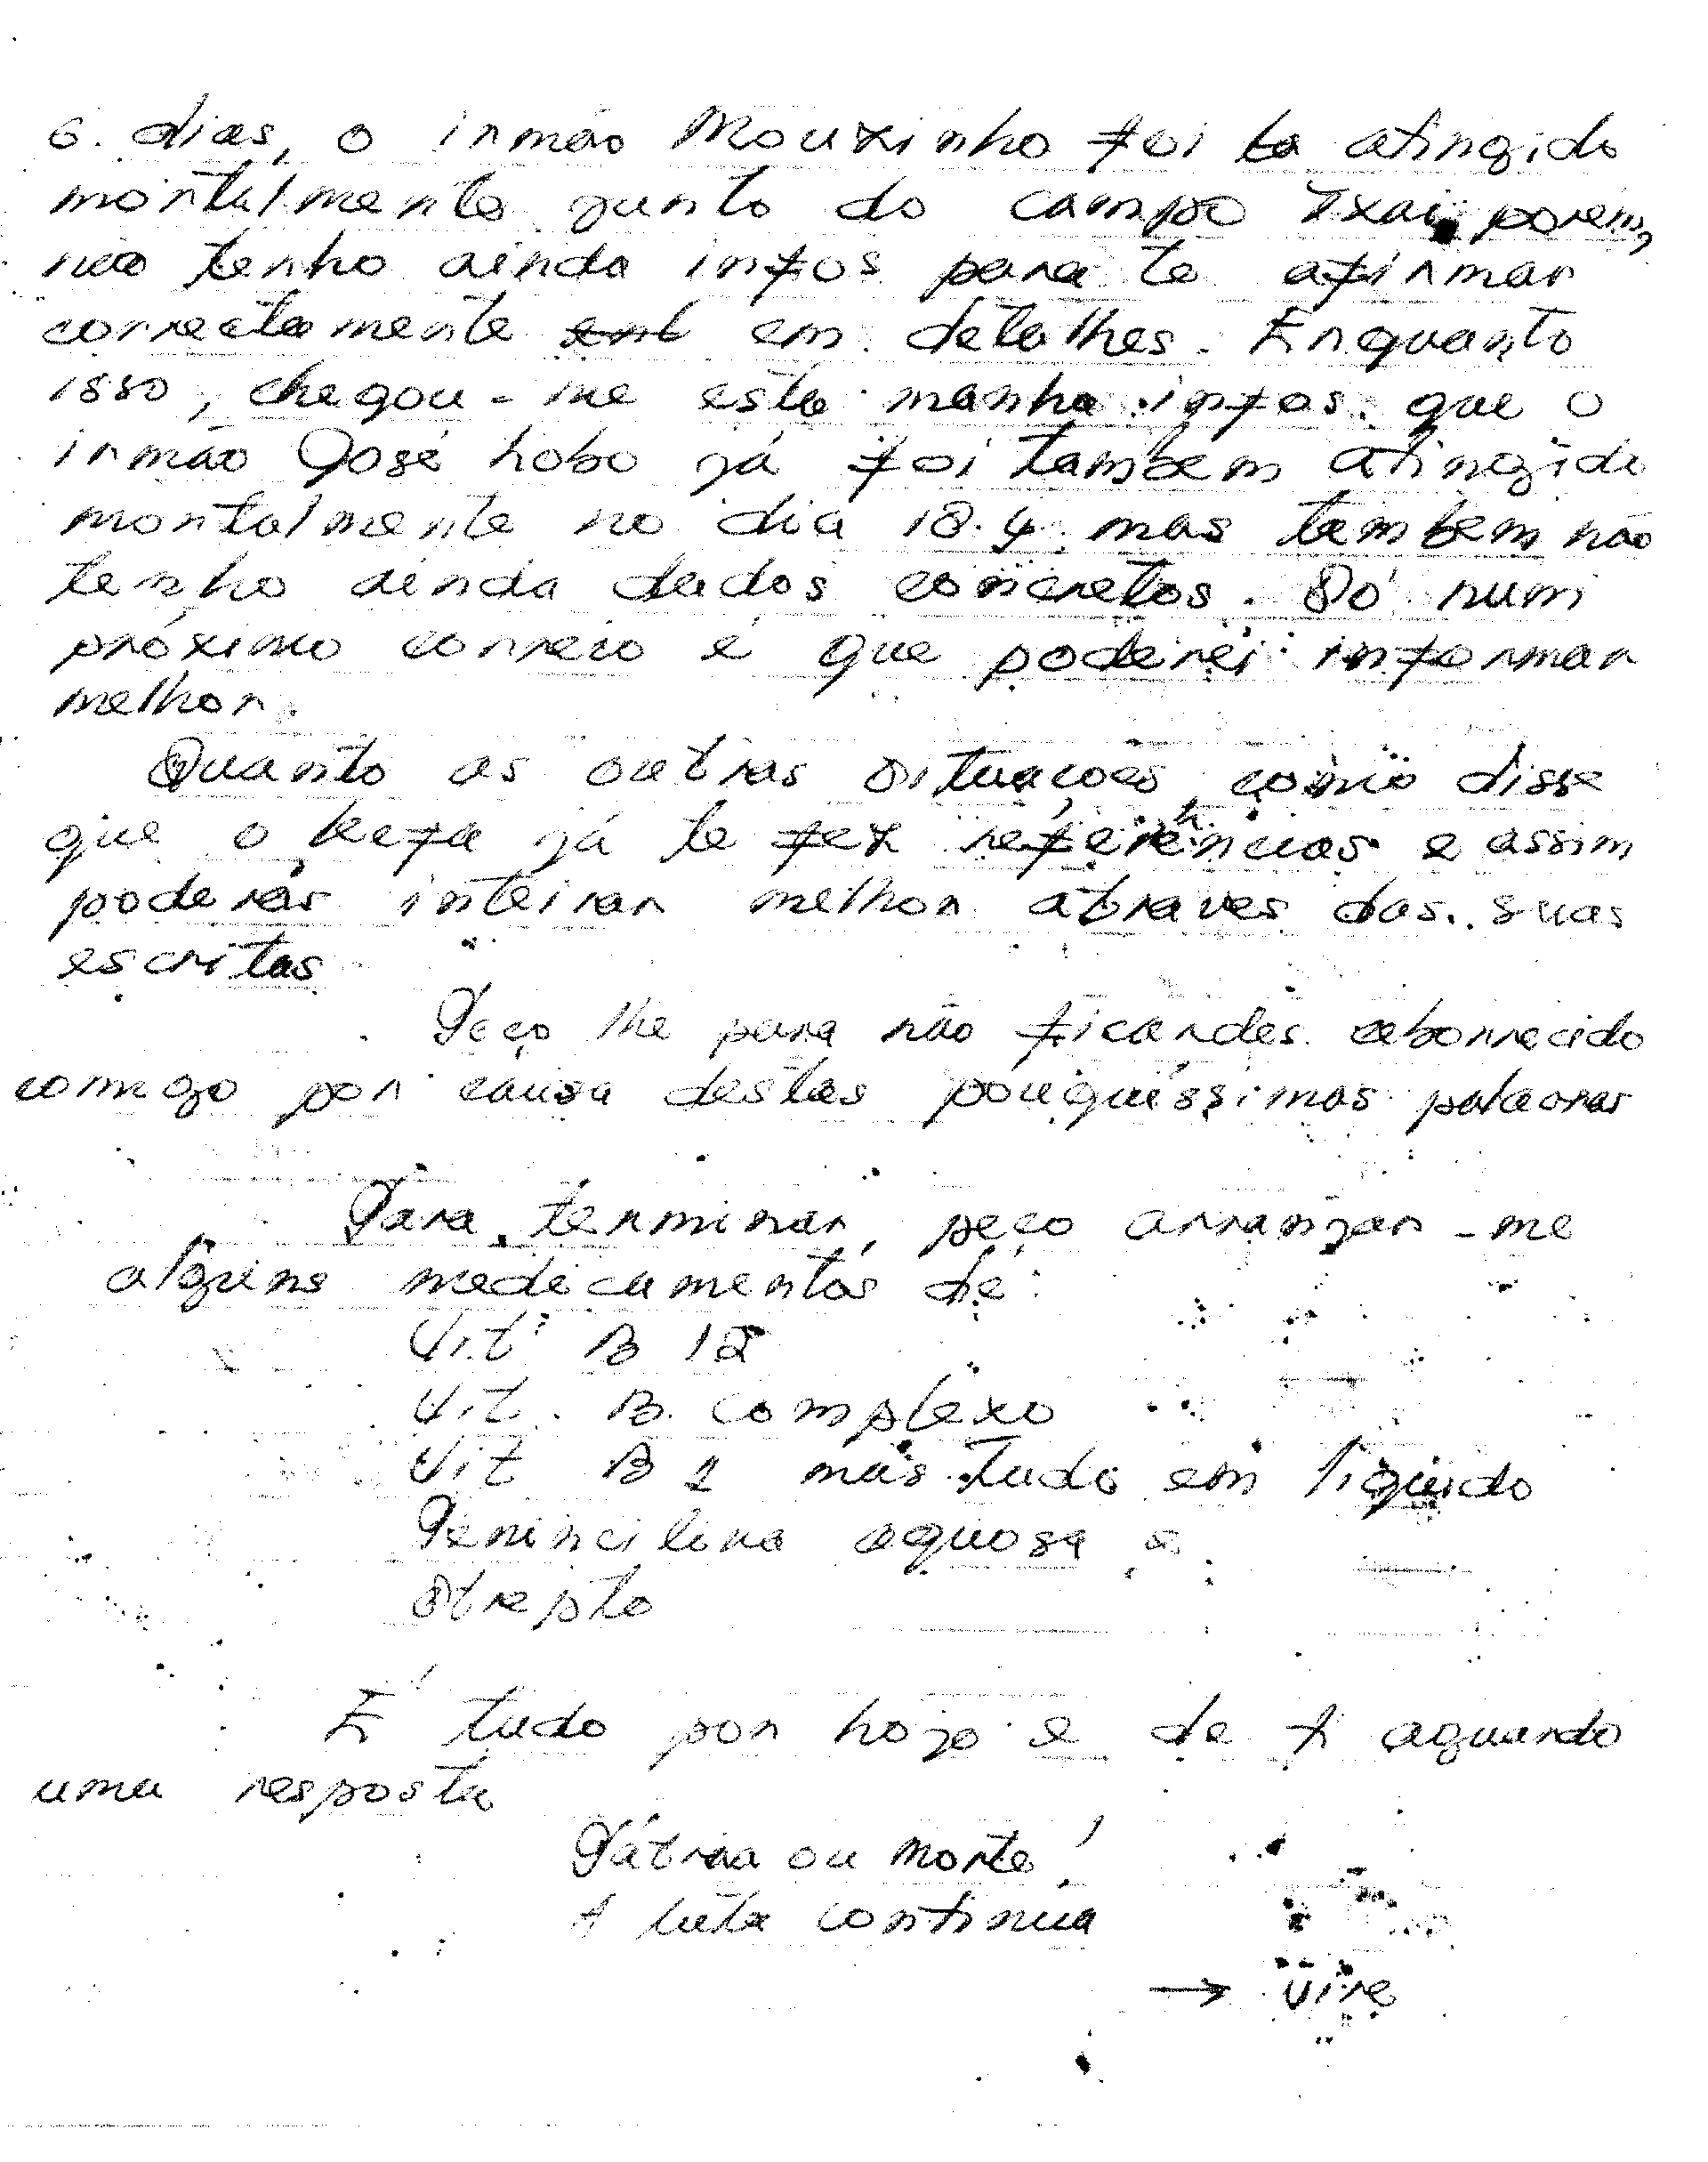 6. dias, o irmão Mouxinho foi atingido
mortalmente junto do campo Txai, porem,
não tenho ainda infos para te afirmar
correctamente em detalhes. Enquanto
isso, chegou-me esta manha infos. que o
irmão José Lobo já foi tambem atingido
mortalmente no dia 18.4. mas tambem não
tenho ainda dados concretos. Só num
próximo correio é que poderei informar
melhor.
Quanto as outras situações, como disse
que o Kefa já te fez referências e assim
poderás inteirar melhor atraves das suas
escritas
Peço lhe para não ficardes aborrecido
comigo por causa destas pouquíssimas palavras
Para terminar, peço arranjar-me
alguns medicamentos de:
Vit. B 12
Vit. B. complexo
Vit B 1 mas tudo em liquido
Penincilina aquosa e
Strepto
É tudo por hoje e de ti aguardo
uma resposta
Pátria ou Morte!
A luta continua
→ Vire